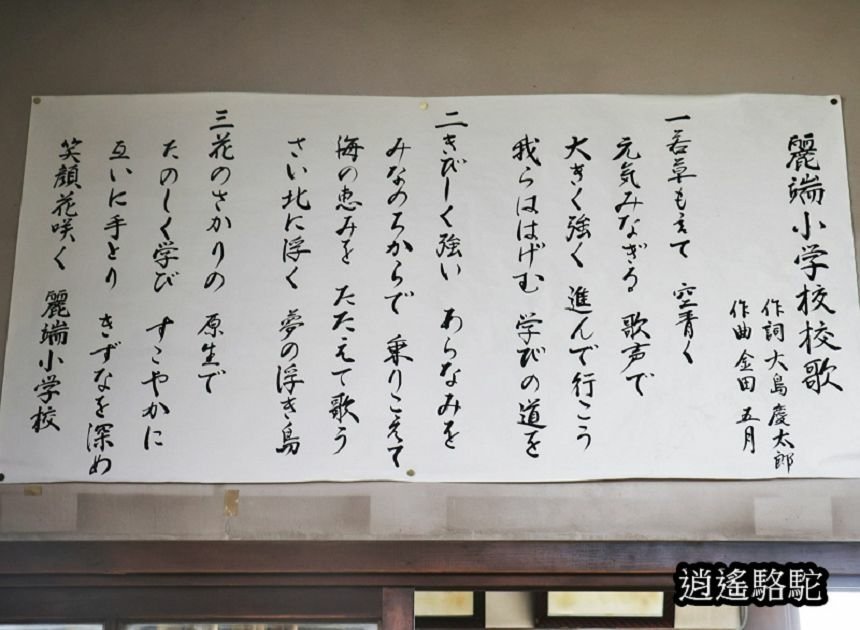 麗端小学校校歌
作詞 大島慶太郎
作曲 金田五月
一 若草もえて 空青く
元気みなぎる 歌声で
大きく強く 進んで行こう
我らははげむ 学びの道を
二 きびしく強い あらなみを
みなのちからで 乗りこえて
海の恵みを たたえて歌う
さい北に浮く 夢の浮き島
三 花のさかりの 原生で
たのしく学び すこやかに
互いに手とり きずなを深め
笑顔花咲く 麗端小学校
逍遙駱駝